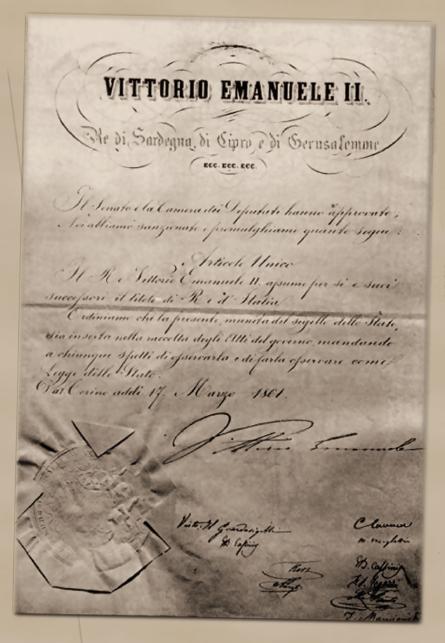 VITTORIO EMANUELE II.
Re di Sardegna, di Cipro, e di Gerusalemme
ECC. ECC. ECC.
Il Senato e la Camera dei Deputati hanno approvato;
Noi abbiamo sanzionato e promulghiamo quanto segue:
Articolo Unico
Il Re Vittorio Emanuele II assume per sè e suoi
successori il titolo di Re d'Italia.
Ordiniamo che la presente, munita del sigillo dello Stato,
sia inserta nella raccolta degli Atti del governo, mandando
a chiunque spetti di osservarla e di farla osservare come
Legge dello Stato.
Da Torino addì 17 Marzo 1861.
Vittorio Emanuele
Visto Il Guardasigilli
G. Cassinis
C Cavour
M Minghetti
G. Cassinis